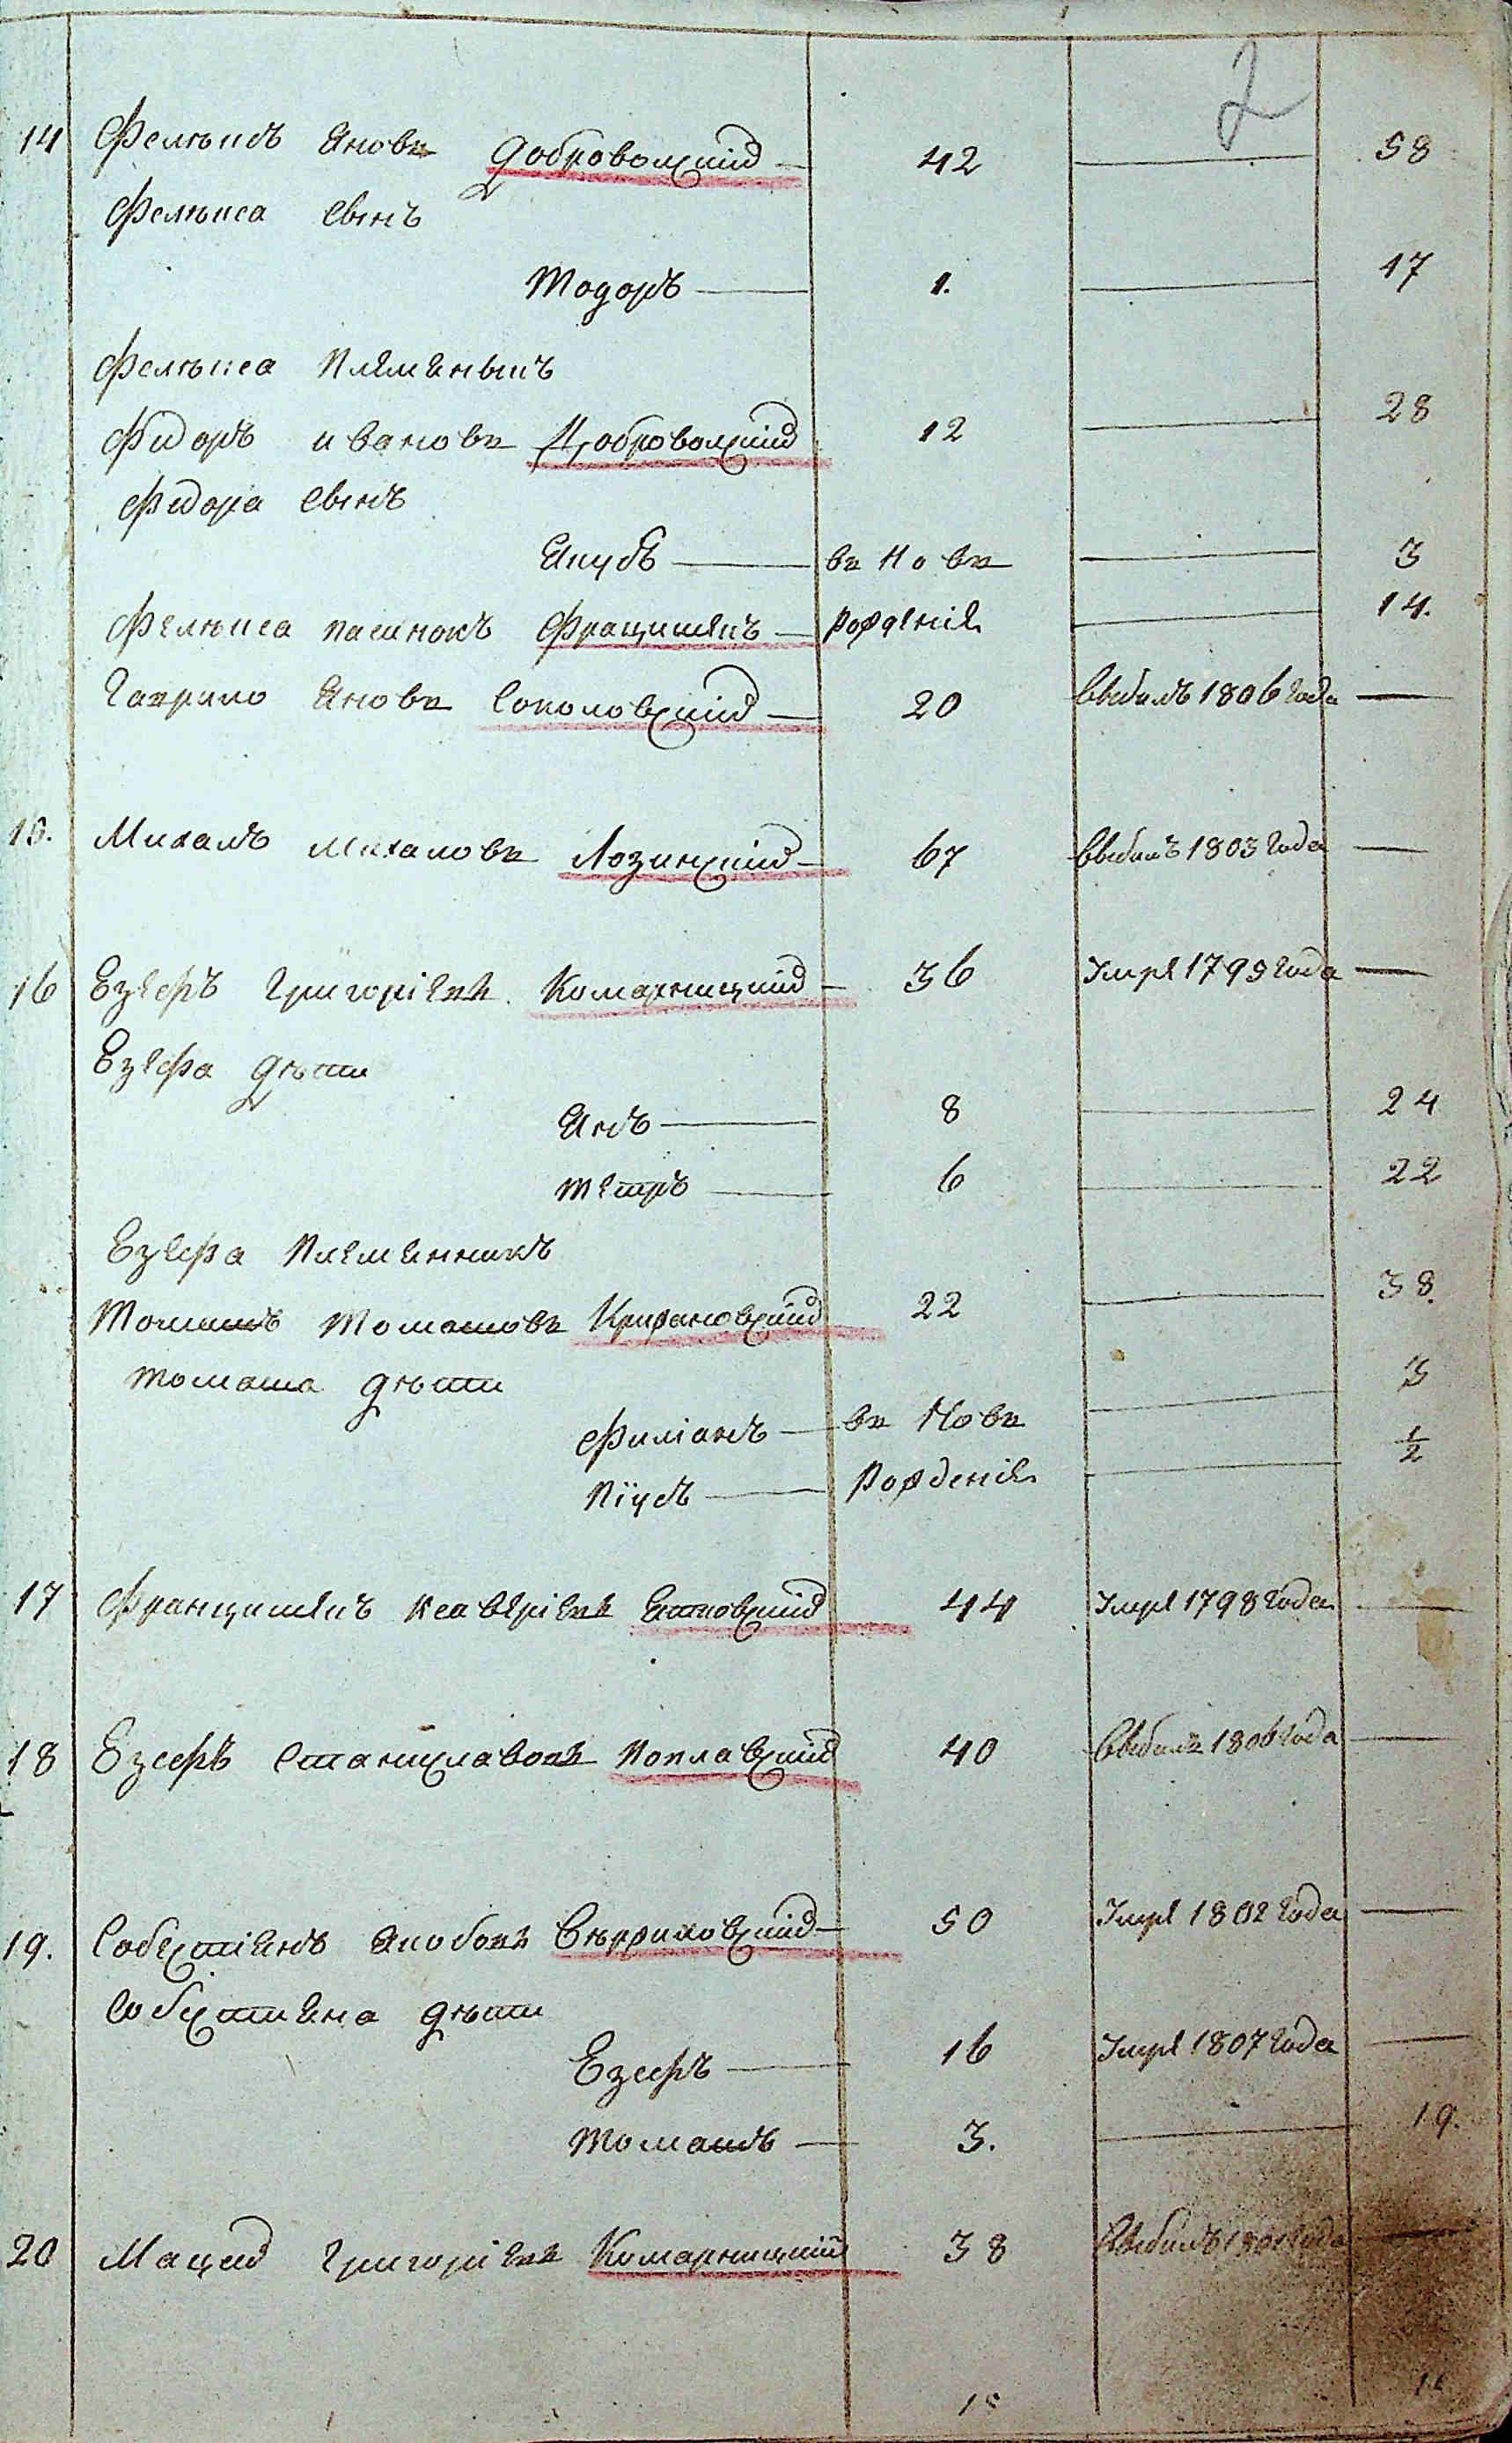 2
14 Фелѣиксъ Яновъ Добровольскій — 42 — 58
Фелѣкса сынъ
Тодоръ — 1. — 17
Фелѣкса племяныкъ
Фидоръ ивановъ Добровольскій 12 — 28
Фидора сынъ
Якубъ — въ новѣ — 3
Фелѣкса пасинокъ Францишекъ — рожденія — 14.
Гаврило Яновъ Соколовскій — 20 выбылъ 1806 года —
15. Михалъ михаловъ Лозинскій — 67 выбылъ 1803 года —
16 Езефъ григоріевъ Комарницкій — 36 Умре 1795 года —
Езефа дѣти
Янъ — 8 — 24
Петръ — 6 — 22
Езефа племянникъ
Томашъ Томашовъ Крижановскій 22 — 38.
Томаша дѣти
Филіанъ — въ новѣ — 3
Піусъ — рожденія — 1/2
17 Францишекъ ксаверіевъ Ятковскій 44 Умре 1798 года —
18 Езефъ Станиславовъ Поплавскій 40 выбылъ 1806 года —
19. Собестіянъ Якобовъ 50 Умре 1802 года —
Собестияна дѣти
Езефъ — 16 Умре 1807 года —
Томашъ — 3. — 19.
20 Мацей григоріевъ Комарницкій 38 выбылъ 1801 года —
15